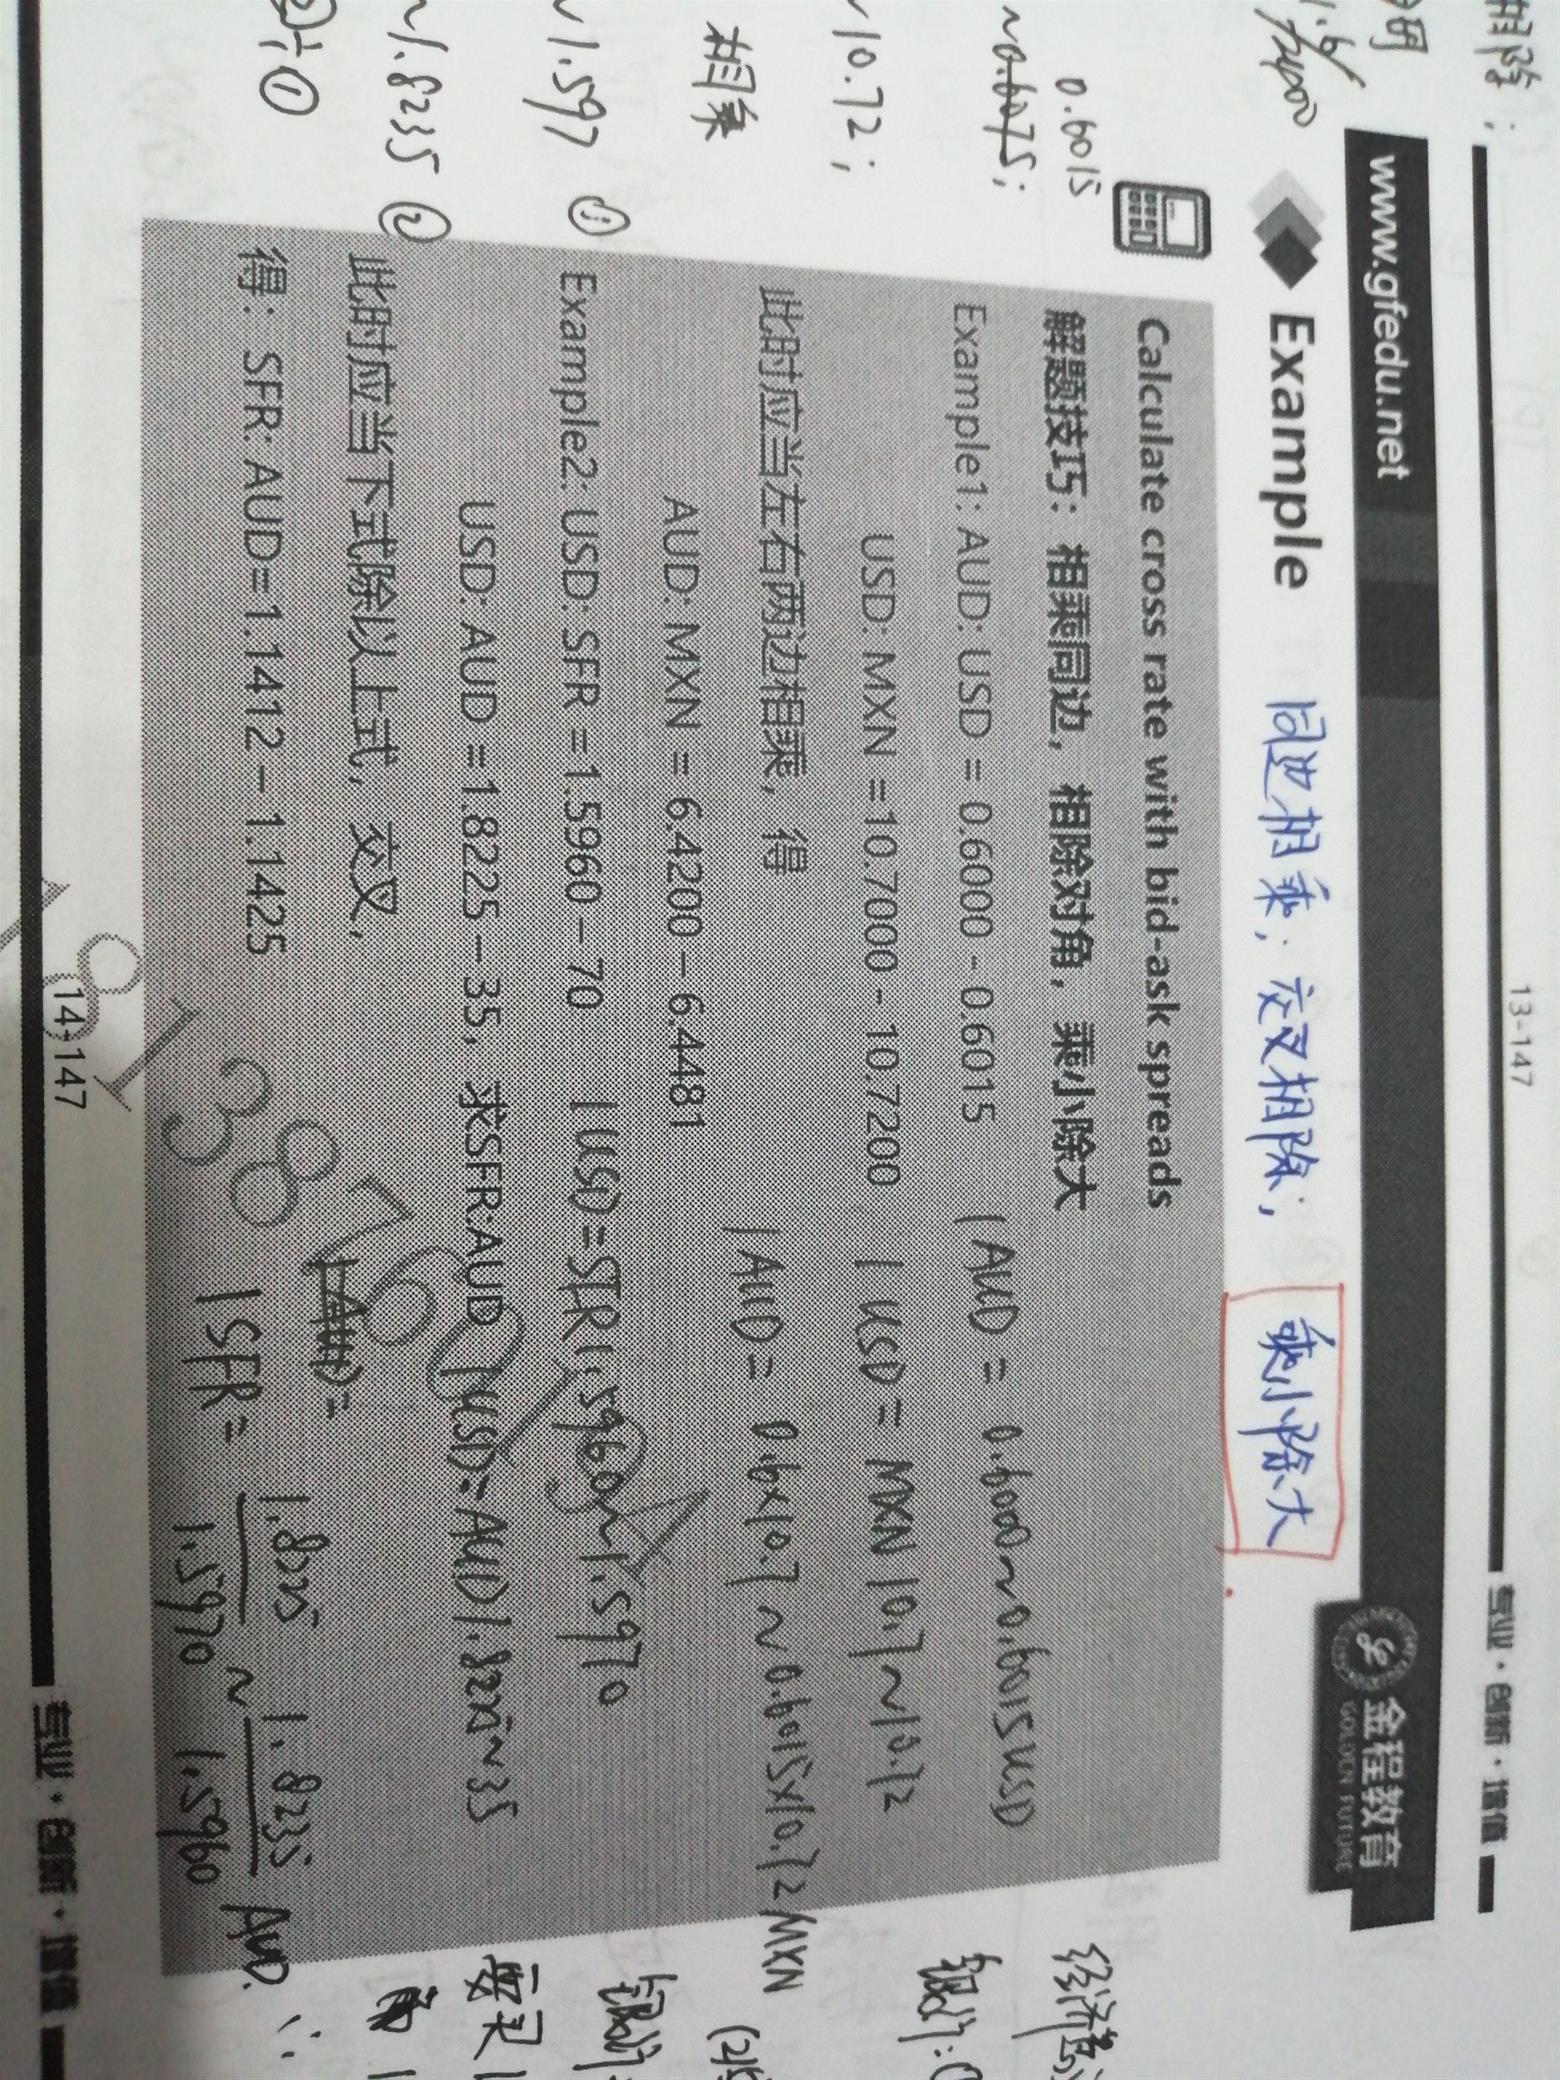 13-147
专业·创新·增值
www.gfedu.net
金程教育
GOLDEN FUTURE
Example 同边相乘；交叉相除；乘小除大
Calculate cross rate with bid-ask spreads
解题技巧：相乘同边，相除对角，乘小除大
Example1: AUD: USD = 0.6000 - 0.6015 1AUD = 0.6000~0.6015USD
USD: MXN =10.7000 - 10.7200 1USD = MXN 10.7~10.72
此时应当左右两边相乘，得
AUD: MXN = 6.4200－6.4481 1AUD = 0.6x10.7 ~ 0.6015x10.72 MXN
Example2: USD: SFR =1.5960－70 1USD=SFR1.5960~1.5970
USD: AUD =1.8225－35，求SFR:AUD 1USD=AUD1.8225~35
此时应当下式除以上式，交叉， 1AUD=
得：SFR: AUD=1.1412－1.1425 1SFR= 1.8225/1.5970 ~ 1.8235/1.5960 AUD
14-147
专业·创新·增值
相除；
0.6015
~0.6075;
~10.72;
相乘
~1.597 ①
~1.8235 ②
②÷①
银行:
银行: